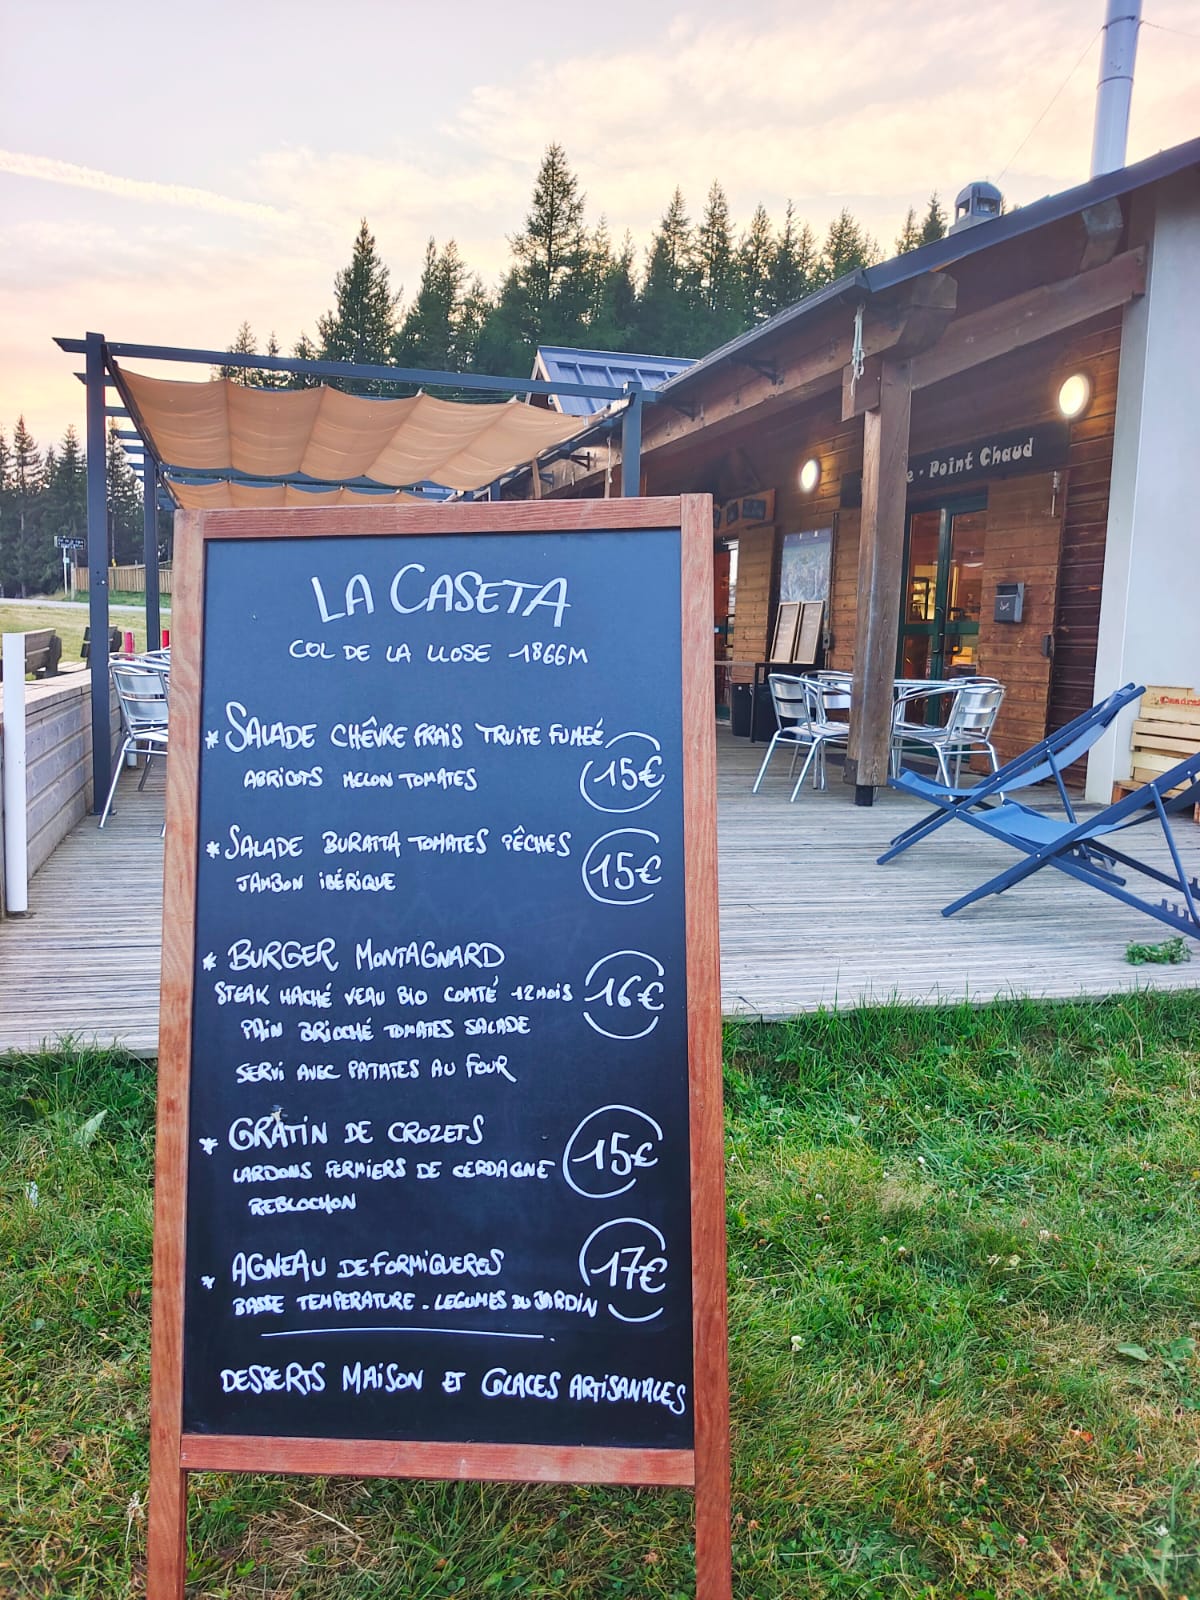 LA CASETA
COL DE LA LLOSE 1866M
* SALADE CHÊVRE FRAIS TRUITE FUMEÉ
ABRICOTS MELON TOMATES
15€
* SALADE BURATTA TOMATES PÊCHES
JAMBON IBÉRIQUE
15€
* BURGER MONTAGNARD
STEAK HACHÉ VEAU BIO COMTÉ 12 MOIS
PAIN BRIOCHÉ TOMATES SALADE
SERVI AVEC PATATES AU FOUR
16€
* GRATIN DE CROZETS
LARDONS FERMIERS DE CERDAGNE
REBLOCHON
15€
* AGNEAU DE FORMIGUERES
BASSE TEMPERATURE . LEGUMES DU JARDIN
17€
DESSERTS MAISON ET GLACES ARTISANALES
Point Chaud